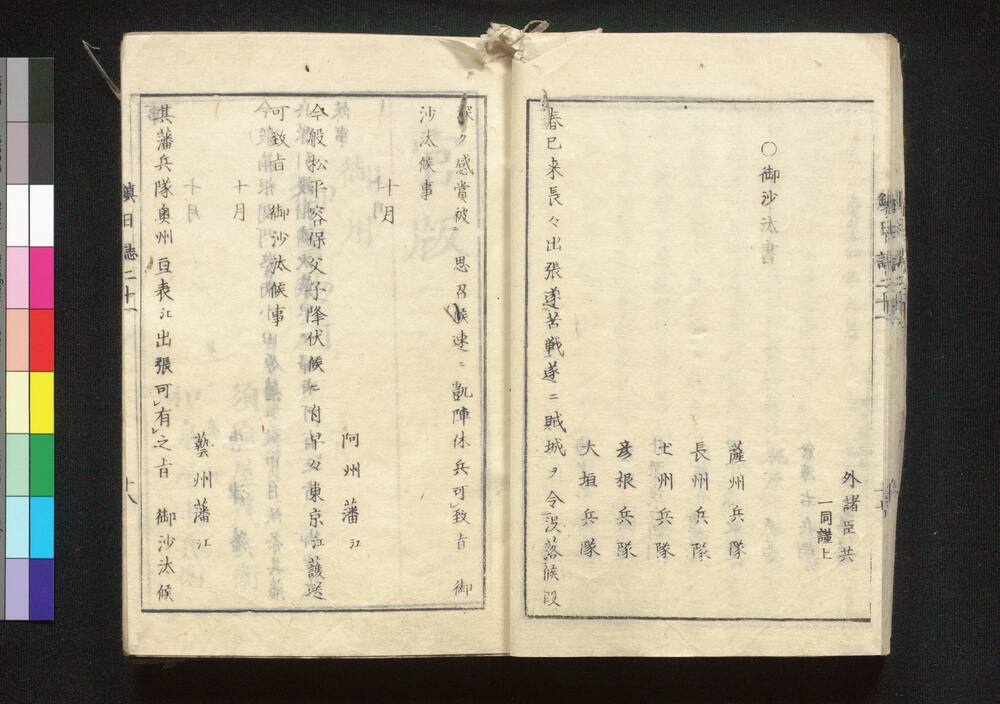 外諸臣共
一同謹上
○御沙汰書
薩州兵隊
長州兵隊
土州兵隊
彦根兵隊
大垣兵隊
春已来長々出張遂苦戦遂ニ賊城ヲ令没落候段
深ク感賞被 思召候速ニ凱陣休兵可致旨 御
沙汰候事
十月
阿州藩江
今般松平容保父子降伏候ニ付早々東京江護送
可致旨 御沙汰候事
十月
藝州藩江
其藩兵隊奥州 表江出張可有之旨 御沙汰候
鎮日誌二十一
十八